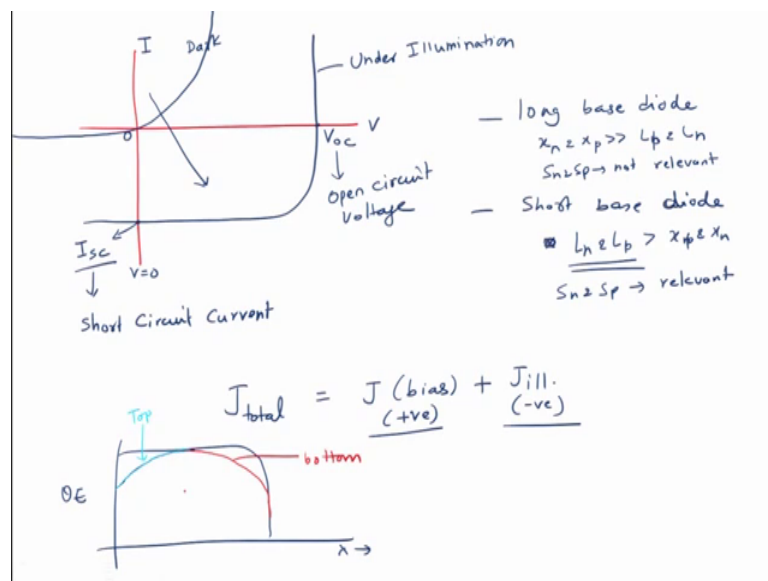 I
Dark
Under Illumination
0
V
Voc
Open circuit
Voltage
Isc
V=0
Short Circuit Current
— long base diode
xn & xp >> Lp & Ln
Sn & Sp → not relevant
— Short base diode
Ln & Lp > xp & xn
Sn & Sp → relevant
J total = J (bias) + J ill.
(+ve) (-ve)
Top
bottom
QE
λ →